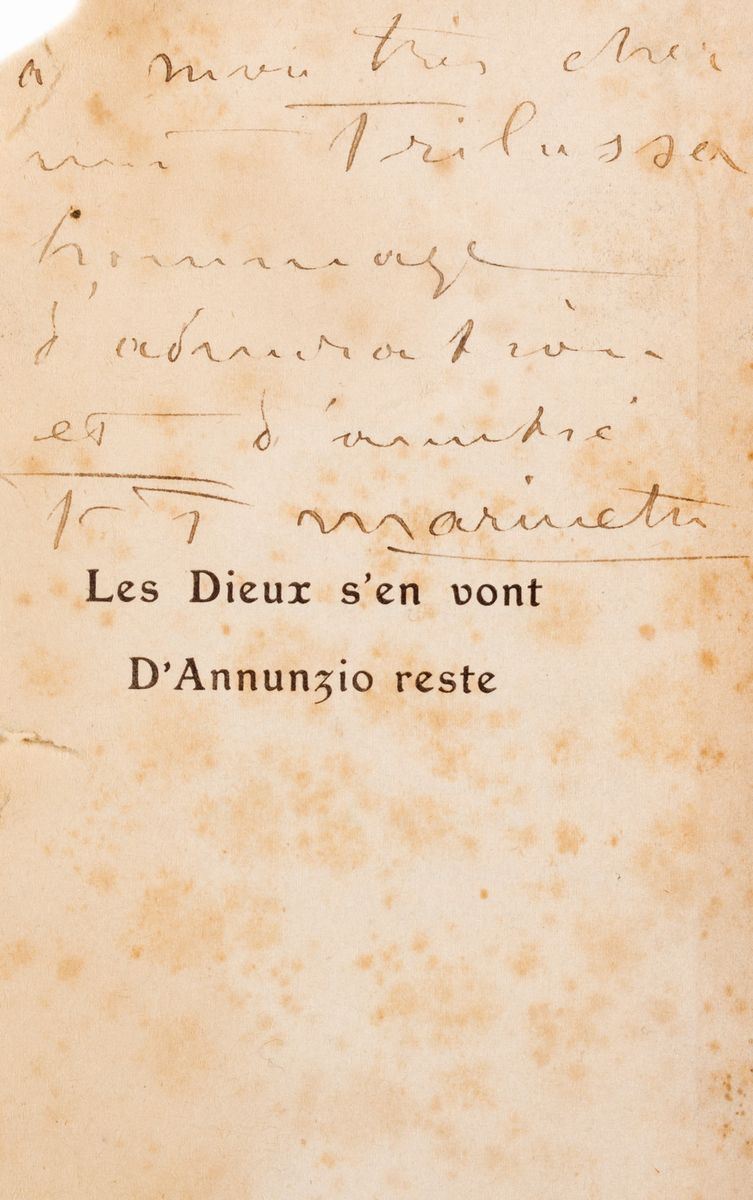 à mon très cher
ami Trilussa
hommage
d'admiration
et d'amitié
F T Marinetti
Les Dieux s'en vont
D'Annunzio reste